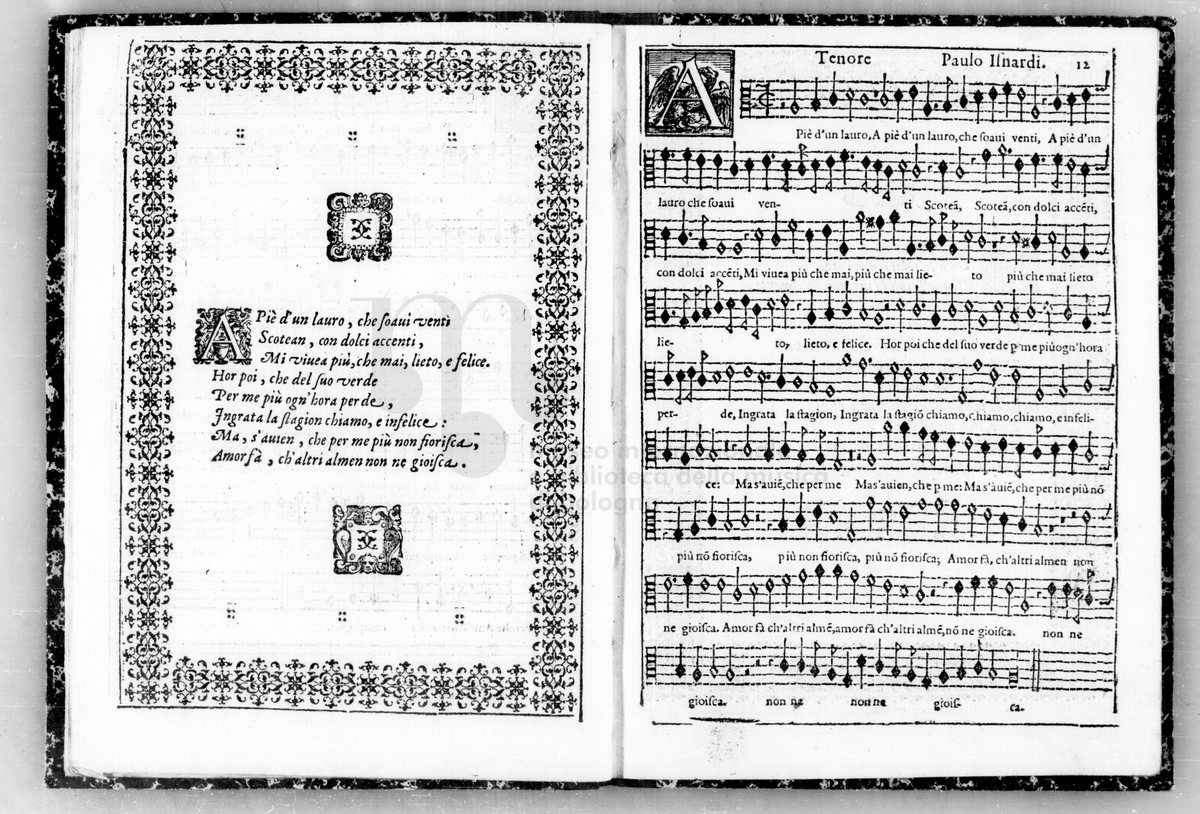 A Piè d'un lauro, che ſoaui venti
Scotean, con dolci accenti,
Mi viuea più, che mai, lieto, e felice.
Hor poi, che del ſuo verde
Per me più ogn'hora perde,
Ingrata la ſtagion chiamo, e infelice:
Ma, s'auien, che per me più non fioriſca,
Amor fà, ch'altri almen non ne gioiſca.
Tenore Paulo Iſnardi. 12
A Piè d'un lauro, A piè d'un lauro, che ſoaui venti, A piè d'un
lauro che ſoaui ven- ti Scoteã, Scoteã, con dolci accẽti,
con dolci accẽti, Mi viuea più che mai, più che mai lie- to più che mai lieto
lie- to, lieto, e felice. Hor poi che del ſuo verde p me più ogn'hora
per- de, Ingrata la ſtagion, Ingrata la ſtagiõ chiamo, chiamo, chiamo, e infeli-
ce: Ma s'auiẽ, che per me Ma s'auien, che p me: Ma s'auiẽ, che per me più nõ
più nõ fioriſca, più non fioriſca, più nõ fioriſca; Amor fà, ch'altri almen non
ne gioiſca. Amor fà ch'altri almẽ, amor fà ch'altri almẽ, nõ ne gioiſca. non ne
gioiſca. non ne non ne gioiſ- ca.